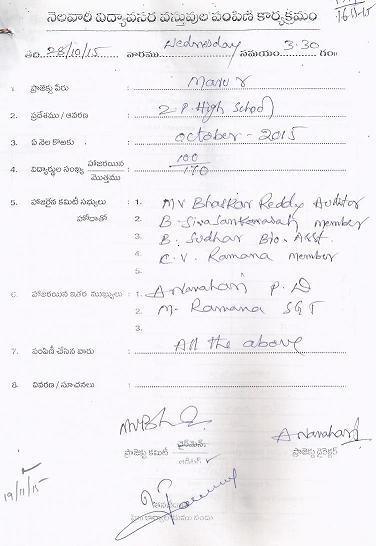 నెలవారి విద్యావసర వస్తువుల పంపిణీ కార్యక్రమం
తేది. 28/10/15 వారము Wednesday సమయం 3.30 గం॥
1. ప్రాజెక్టు పేరు : Marur
2. ప్రదేశము / ఆవరణ : Z.P. High School
3. ఏ నెల కొఱకు : October - 2015
4. విద్యార్థుల సంఖ్య హాజరయిన / మొత్తము : 100 / 170
5. హాజరైన కమిటీ సభ్యులు : 1. MV Bhaskar Reddy Auditor
హోదాతో 2. B. Sivasankaraiah member
3. B. Sudhar Bio. Asst.
4. C.V. Ramana member
5.
6. హాజరయిన ఇతర ముఖ్యులు : 1. A Narahari P.D
2. M. Ramana SGT
3.
7. పంపిణీ చేసిన వారు : All the above
8. వివరణ / సూచనలు :
చైర్‌మెన్
ప్రాజెక్టు కమిటీ A Narahari
ఆడిటర్ ✓ ప్రాజెక్టు డైరెక్టర్
19/11/15